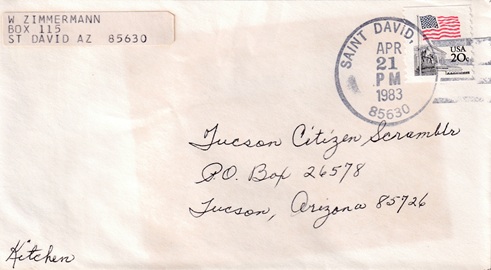 W ZIMMERMANN
BOX 115
ST DAVID AZ 85630
SAINT DAVID,
APR
21
PM
1983
85630
USA
20c
Tucson Citizen Scramblr
P.O. Box 26578
Tucson, Arizona 85726
Kitchen